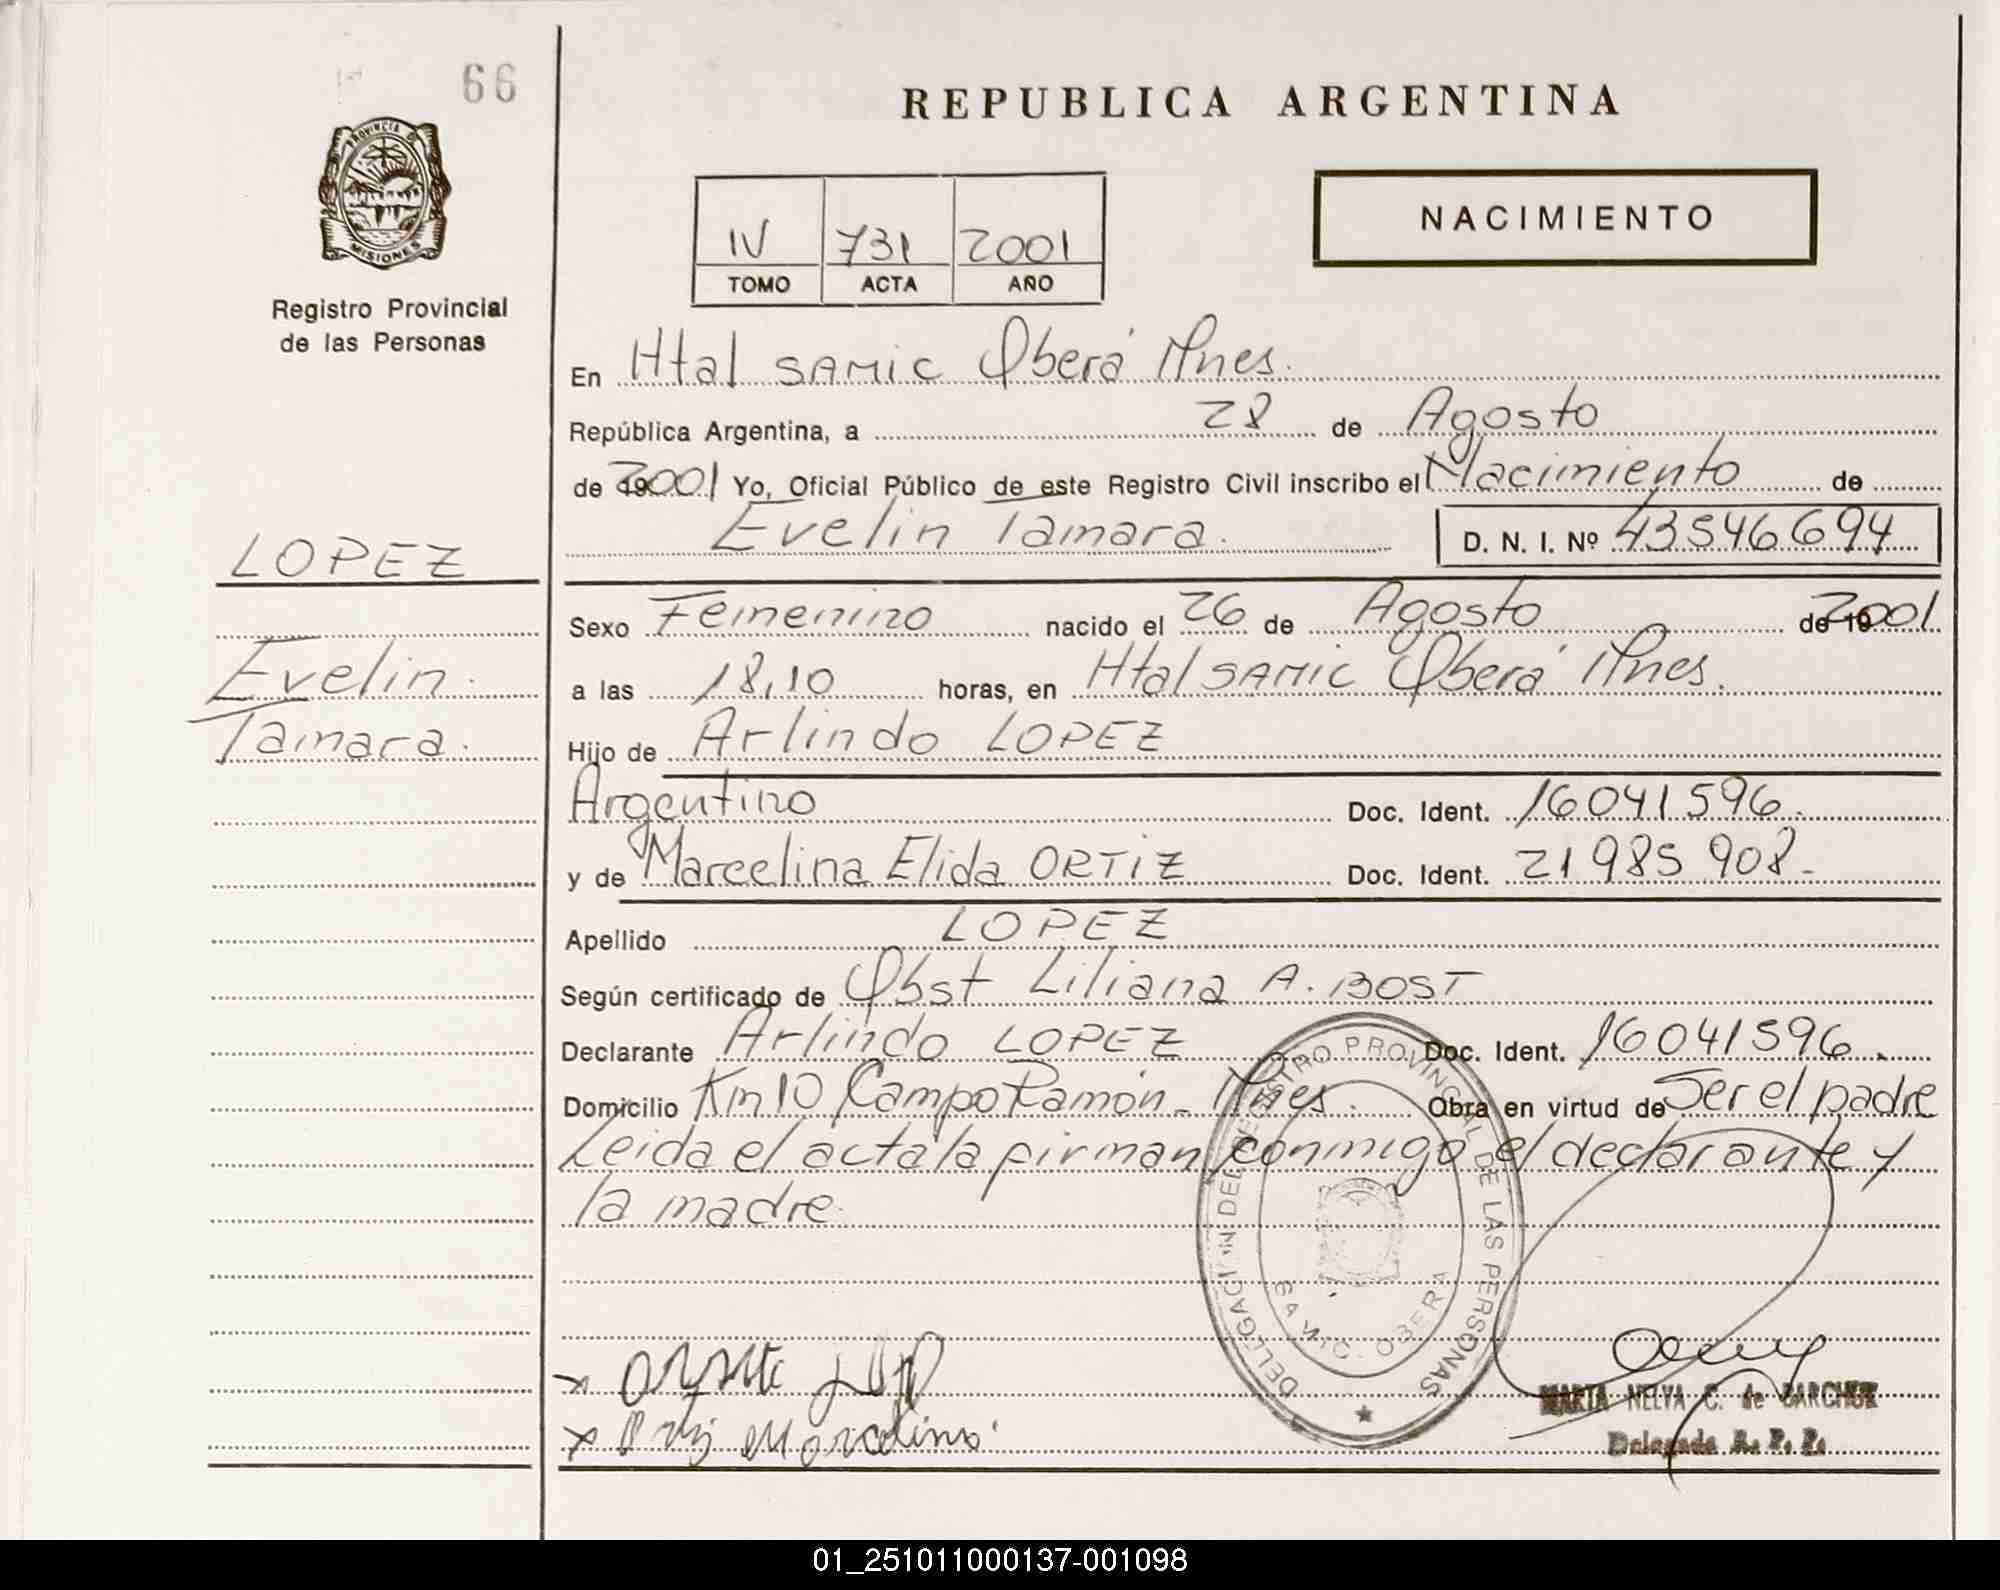 66
PROVINCIA DE
MISIONES
Registro Provincial
de las Personas
REPUBLICA ARGENTINA
IV 731 2001
TOMO ACTA AÑO
NACIMIENTO
En Htal SAMIC Oberá Mnes.
República Argentina, a 28 de Agosto
de 2001 Yo, Oficial Público de este Registro Civil inscribo el Nacimiento de
Evelin Tamara. D. N. I. Nº 43546694
LOPEZ
Evelin
Tamara.
Sexo Femenino nacido el 26 de Agosto de 2001
a las 18,10 horas, en Htal SAMIC Oberá Mnes.
Hijo de Arlindo LOPEZ
Argentino Doc. Ident. 16041596.
y de Marcelina Elida ORTIZ Doc. Ident. 21985908-
Apellido LOPEZ
Según certificado de Obst Liliana A. BOST
Declarante Arlindo LOPEZ Doc. Ident. 16041596.
Domicilio Km 10 Campo Ramón - Mnes. Obra en virtud de Ser el padre
Leida el acta la firman conmigo el declarante y
la madre.
DELEGACION DEL REGISTRO PROVINCIAL DE LAS PERSONAS
SAMIC. OBERA
x
x Ortiz Marcelina.
MARTA NELVA C. de BARCHUK
Delegada R. P. P.
01_251011000137-001098